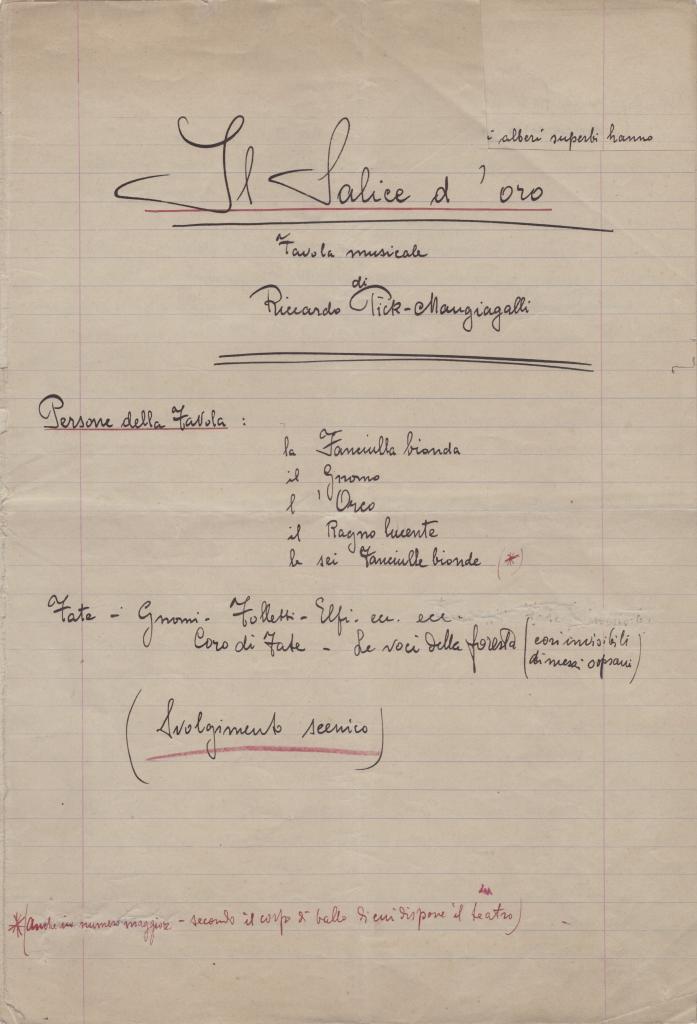 i alberi superbi hanno
Il Salice d'oro
Favola musicale
di
Riccardo Pick-Mangiagalli
Persone della Favola :
la Fanciulla bionda
il Gnomo
l'Orco
il Ragno lucente
le sei Fanciulle bionde (*)
Fate - Gnomi - Folletti - Elfi. ecc. ecc.
Coro di Fate - Le voci della foresta (cori invisibili
di mezzi soprani)
(Svolgimento scenico)
*(Anche in numero maggiore - secondo il corpo di ballo di cui dispone il teatro) -